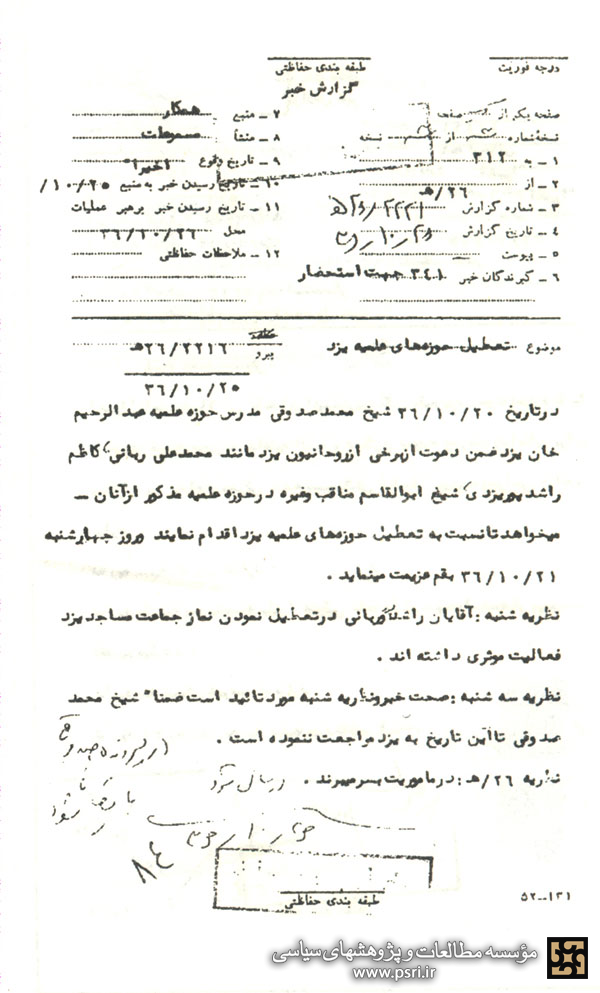 درجه فوریت
طبقه بندی حفاظتی
گزارش خبر
صفحه یکم از یک صفحه
نسخه شماره از نسخه
۱ ـ به ۳۱۲
۲ ـ از ۲۶/ هـ
۳ ـ شماره گزارش
۴ ـ تاریخ گزارش
۵ ـ پیوست
۶ ـ گیرندگان خبر ۳۴۱ جهت استحضار
۷ ـ منبع همکار
۸ ـ منشأ مسموعات
۹ ـ تاریخ وقوع اخیرا"
۱۰ ـ تاریخ رسیدن خبر به منبع ۱۰/۲۵/
۱۱ ـ تاریخ رسیدن خبر برهبر عملیات
محل ۳۶/۱۰/۲۶
۱۲ ـ ملاحظات حفاظتی
موضوع تعطیل حوزه‌های علمیه یزد
پیرو ۲۶/۲۲۱۶هـ
۳۶/۱۰/۲۵
در تاریخ ۳۶/۱۰/۲۰ شیخ محمد صدوقی مدرس حوزه علمیه عبدالرحیم
خان یزد ضمن دعوت از برخی از روحانیون یزد مانند محمدعلی ربانی، کاظم
راشد پوریزدی شیخ ابوالقاسم مناقب وغیره در حوزه علمیه مذکور از آنان ـ
میخواهد تا نسبت به تعطیل حوزه‌های علمیه یزد اقدام نمایند وروز چهارشنبه
۳۶/۱۰/۲۱ بقم عزیمت مینماید .
نظریه شنبه : آقایان راشد وربانی در تعطیل نمودن نماز جماعت مساجد یزد
فعالیت موثری داشته اند .
نظریه سه شنبه : صحت خبر ونظریه شنبه مورد تائید است ضمنا" شیخ محمد
صدوقی تا این تاریخ به یزد مراجعت ننموده است .
نظریه ۲۶/هـ : در ماموریت بسر میبرند .
ارسال شود
۸۴
طبقه بندی حفاظتی
۱۳۱ــ۵۲
مؤسسه مطالعات و پژوهشهای سیاسی
www.psri.ir